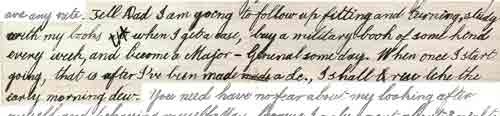 at any rate. Tell Dad I am going to follow up fitting and turning, study
with my books & when I get a case, buy a military book of some kind
every week, and become a Major-General some day. When once I start
going, that is after I've been made a de., I shall & rew like the
early morning dew. You need have no fear about my looking after